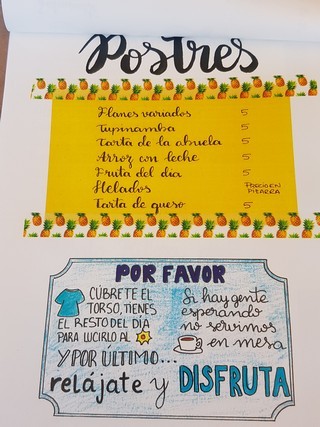 Postres
Flanes variados 5
Tupinamba 5
Tarta de la abuela 5
Arroz con leche 5
Fruta del día 5
Helados PRECIO EN PIZARRA
Tarta de queso 5
POR FAVOR
CÚBRETE EL
TORSO, TIENES
EL RESTO DEL DÍA
PARA LUCIRLO AL
Si hay gente
esperando
no servimos
en mesa
Y POR ÚLTIMO...
relájate y DISFRUTA